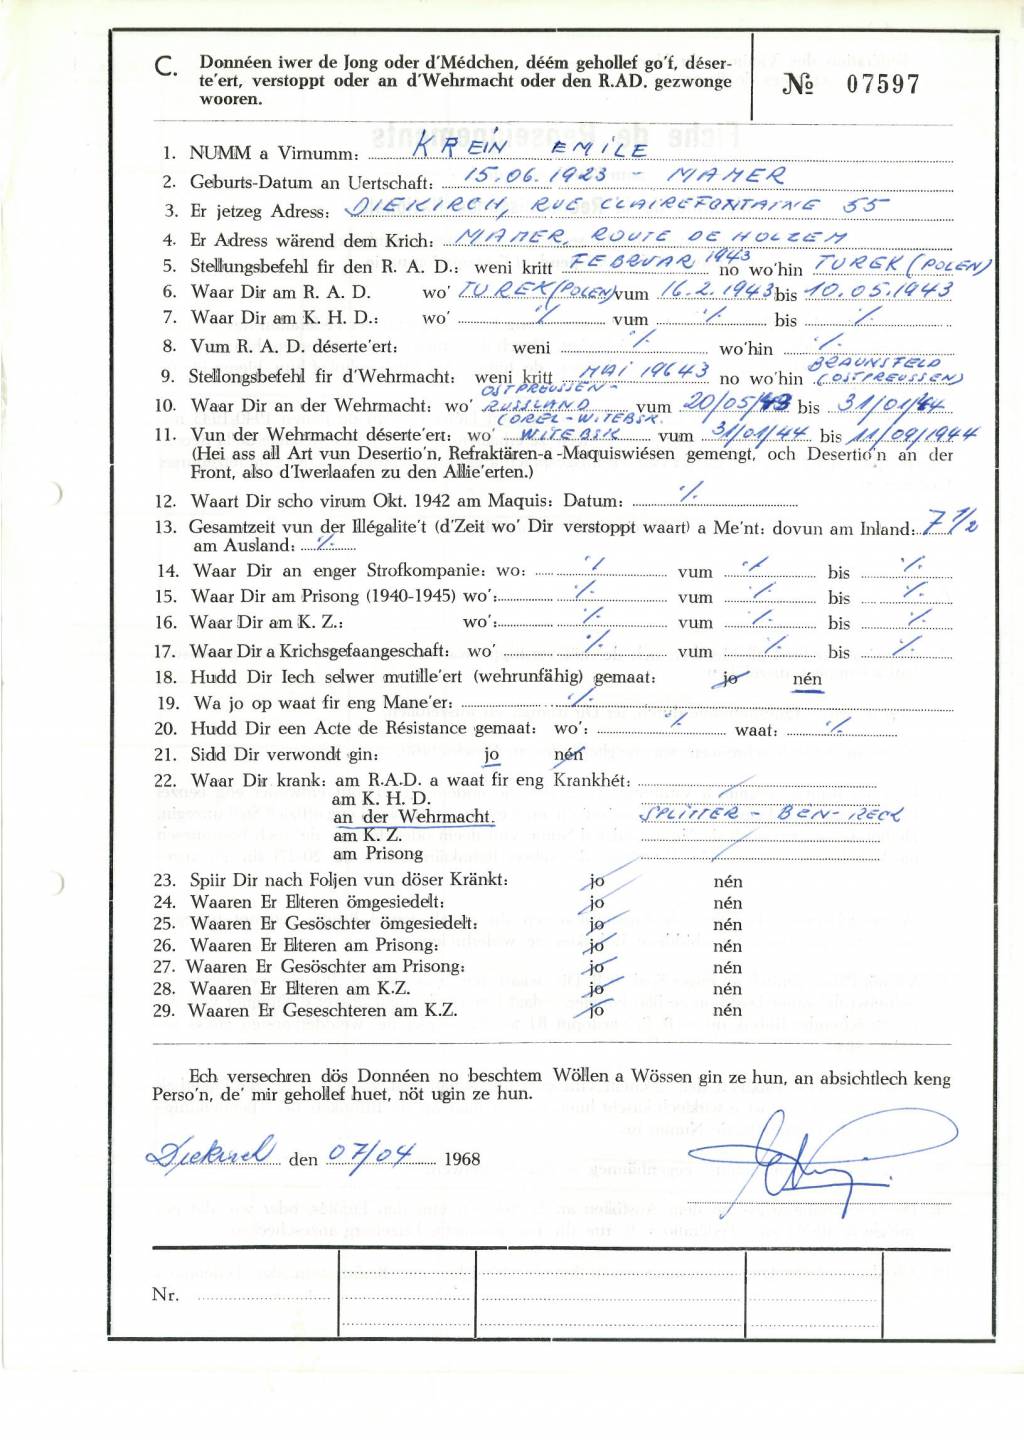 C. Donnéen iwer de Jong oder d'Médchen, déém gehollef go'f, déser-
te'ert, verstoppt oder an d'Wehrmacht oder den R.AD. gezwonge
wooren.
№ 07597
1. NUMM a Virnumm: KREIN EMILE
2. Geburts-Datum an Uertschaft: 15.06.1923 - MAMER
3. Er jetzeg Adress: DIEKIRCH, RUE CLAIREFONTAINE 55
4. Er Adress wärend dem Krich: MAMER, ROUTE DE HOLZEM
5. Stellungsbefehl fir den R. A. D.: weni kritt FEBRUAR 1943 no wo'hin TUREK (POLEN)
6. Waar Dir am R. A. D. wo' TUREK (POLEN) vum 16.2.1943 bis 10.05.1943
7. Waar Dir am K. H. D.: wo' ·/. vum ·/. bis ·/.
8. Vum R. A. D. déserte'ert: weni ·/. wo'hin ·/.
BRAUNSFELD
9. Stellongsbefehl fir d'Wehrmacht: weni kritt MAI 19643 no wo'hin (OSTPREUSSEN)
OSTPREUSSEN -
10. Waar Dir an der Wehrmacht: wo' RUSSLAND vum 20/05/43 bis 31/01/44
(OREL - WITEBSK.
11. Vun der Wehrmacht déserte'ert: wo' WITEBSK vum 31/01/44 bis 11/09/1944
(Hei ass all Art vun Desertio'n, Refraktären-a-Maquiswiésen gemengt, och Desertio'n an der
Front, also d'Iwerlaafen zu den Allie'erten.)
12. Waart Dir scho virum Okt. 1942 am Maquis: Datum: ·/.
13. Gesamtzeit vun der Illégalite't (d'Zeit wo' Dir verstoppt waart) a Me'nt: dovun am Inland: 7 1/2
am Ausland: ·/.
14. Waar Dir an enger Strofkompanie: wo: ·/. vum ·/. bis ·/.
15. Waar Dir am Prisong (1940-1945) wo': ·/. vum ·/. bis ·/.
16. Waar Dir am K. Z.: wo': ·/. vum ·/. bis ·/.
17. Waar Dir a Krichsgefaangeschaft: wo' ·/. vum ·/. bis ·/.
18. Hudd Dir Iech selwer mutille'ert (wehrunfähig) gemaat: jo nén
19. Wa jo op waat fir eng Mane'er: ·/.
20. Hudd Dir een Acte de Résistance gemaat: wo': ·/. waat: ·/.
21. Sidd Dir verwondt gin: jo nén
22. Waar Dir krank: am R.A.D. a waat fir eng Krankhét:
am K. H. D.
an der Wehrmacht. SPLITTER - BEN - RECK
am K. Z.
am Prisong
23. Spiir Dir nach Foljen vun döser Kränkt: jo nén
24. Waaren Er Elteren ömgesiedelt: jo nén
25. Waaren Er Gesöschter ömgesiedelt: jo nén
26. Waaren Er Elteren am Prisong: jo nén
27. Waaren Er Gesöschter am Prisong: jo nén
28. Waaren Er Elteren am K.Z. jo nén
29. Waaren Er Geseschteren am K.Z. jo nén
Ech versechren dös Donnéen no beschtem Wöllen a Wössen gin ze hun, an absichtlech keng
Perso'n, de' mir gehollef huet, nöt ugin ze hun.
Diekirch den 07/04 1968
Nr.